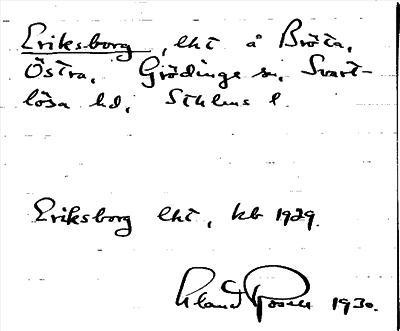 Eriksborg, lht å Bröta,
Östra, Grödinge sn, Svart-
lösa hd, Sthlms l.
Eriksborg lht, kb 1929.
1930.